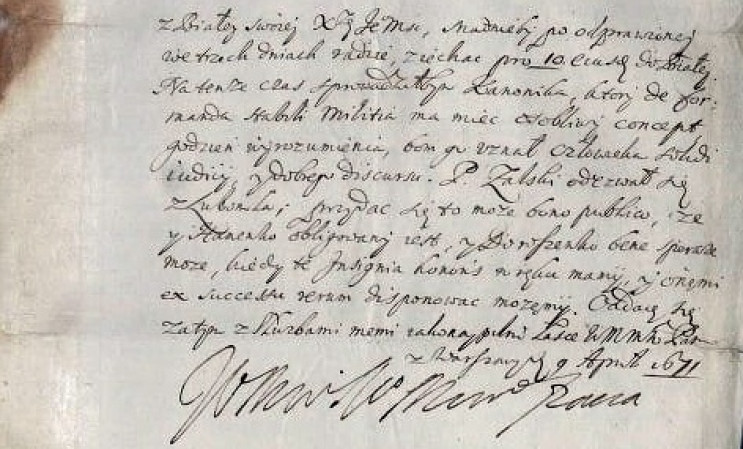 z Białey swoiey Xże JeMsc, nadmieły po odprawioney
we trzech dniach radzie, ziechac pro 10. huius do Białey.
Na tenze czas Kanonika, ktory de for:
manda stabili Militia ma miec osobliwy concept
godzien wyrozumienia, bom go uznał człowieka solidi
iudicij, y dobrego discursu. P. Zalski odezwał się
z Lubomla; przydac się to moze bono publico, ze
y Hanenko obligowany iest, y Doroszenko bene sperare
moze, kiedy te Insignia honoris w ręku mamy, y onemi
ex successu rerum disponowac mozemy. Oddaię się
zatym z słuzbami memi łasce WMM Pan
z Warszawy 9 April 1671